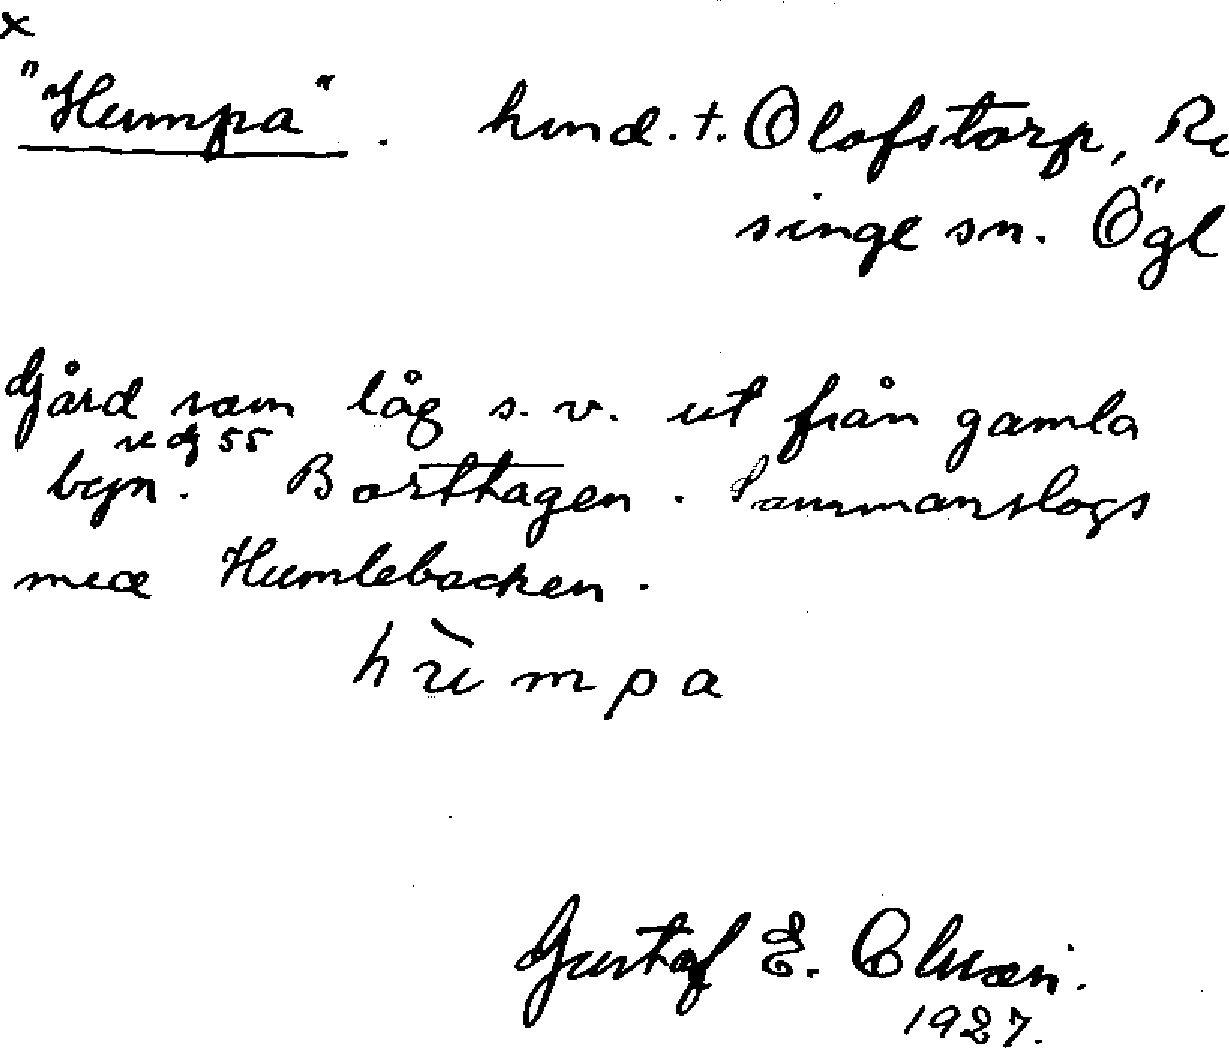 x
"Humpa". hmd. t. Olofstorp, Re
singe sn. Ögl
Gård som låg s.v. ut från gamla
55
byn. Borttagen. Sammanslogs
med Humlebacken.
hùmpa
Gustaf E.
1927.